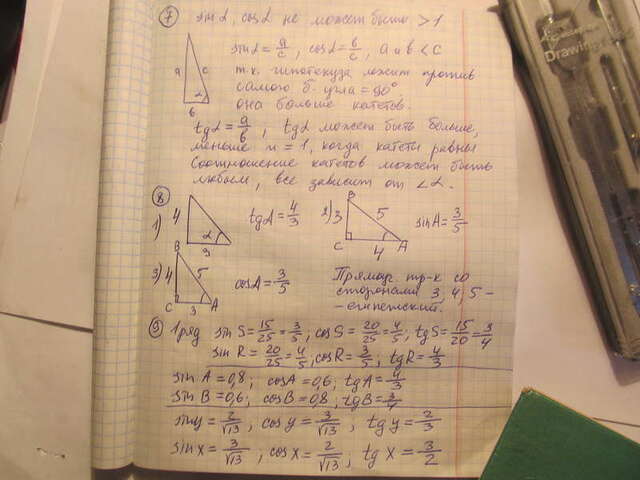 7 sin α, cos α не может быть > 1
sin α = a/c, cos α = в/c, a и в < c
т.к. гипотенуза лежит против
самого б. угла = 90°
она больше катетов.
a c α в
tg α = a/в, tg α может быть больше,
меньше и = 1, когда катеты равны
Соотношение катетов может быть
любым, все зависит от < α.
8
1) 4 α 3 tg α = 4/3 2) 3 B 5 C 4 A sin A = 3/5
3) B 4 5 C 3 A cos A = 3/5
Прямоуг. тр-к со
сторонами 3, 4, 5 –
– египетский.
9 1 ряд sin S = 15/25 = 3/5, cos S = 20/25 = 4/5, tg S = 15/20 = 3/4
sin R = 20/25 = 4/5, cos R = 3/5, tg R = 4/3
sin A = 0,8; cos A = 0,6; tg A = 4/3
sin B = 0,6; cos B = 0,8; tg B = 3/4
sin y = 2/√13, cos y = 3/√13, tg y = 2/3
sin x = 3/√13, cos x = 2/√13, tg x = 3/2
Drawing